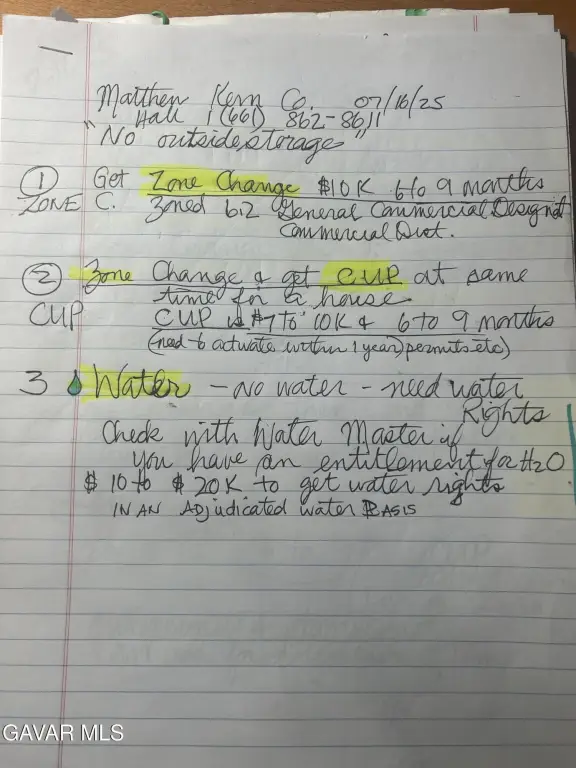 Matthew Kern Co. 07/16/25
Hall 1(661) 862-8611
"No outside storage"
① Get Zone Change $10K 6 to 9 months
ZONE C. Zoned 6.2 General Commercial Designat
Commercial Dist.
② Zone Change & get CUP at same
time for a house
CUP CUP is $7 to 10K & 6 to 9 months
(need to activate within 1 year) permits etc)
3 Water - No water - need water
Rights
Check with Water Master if
you have an entitlement for H2O
$ 10 to $ 20K to get water rights
IN AN ADJUDICATED WATER BASIS
GAVAR MLS